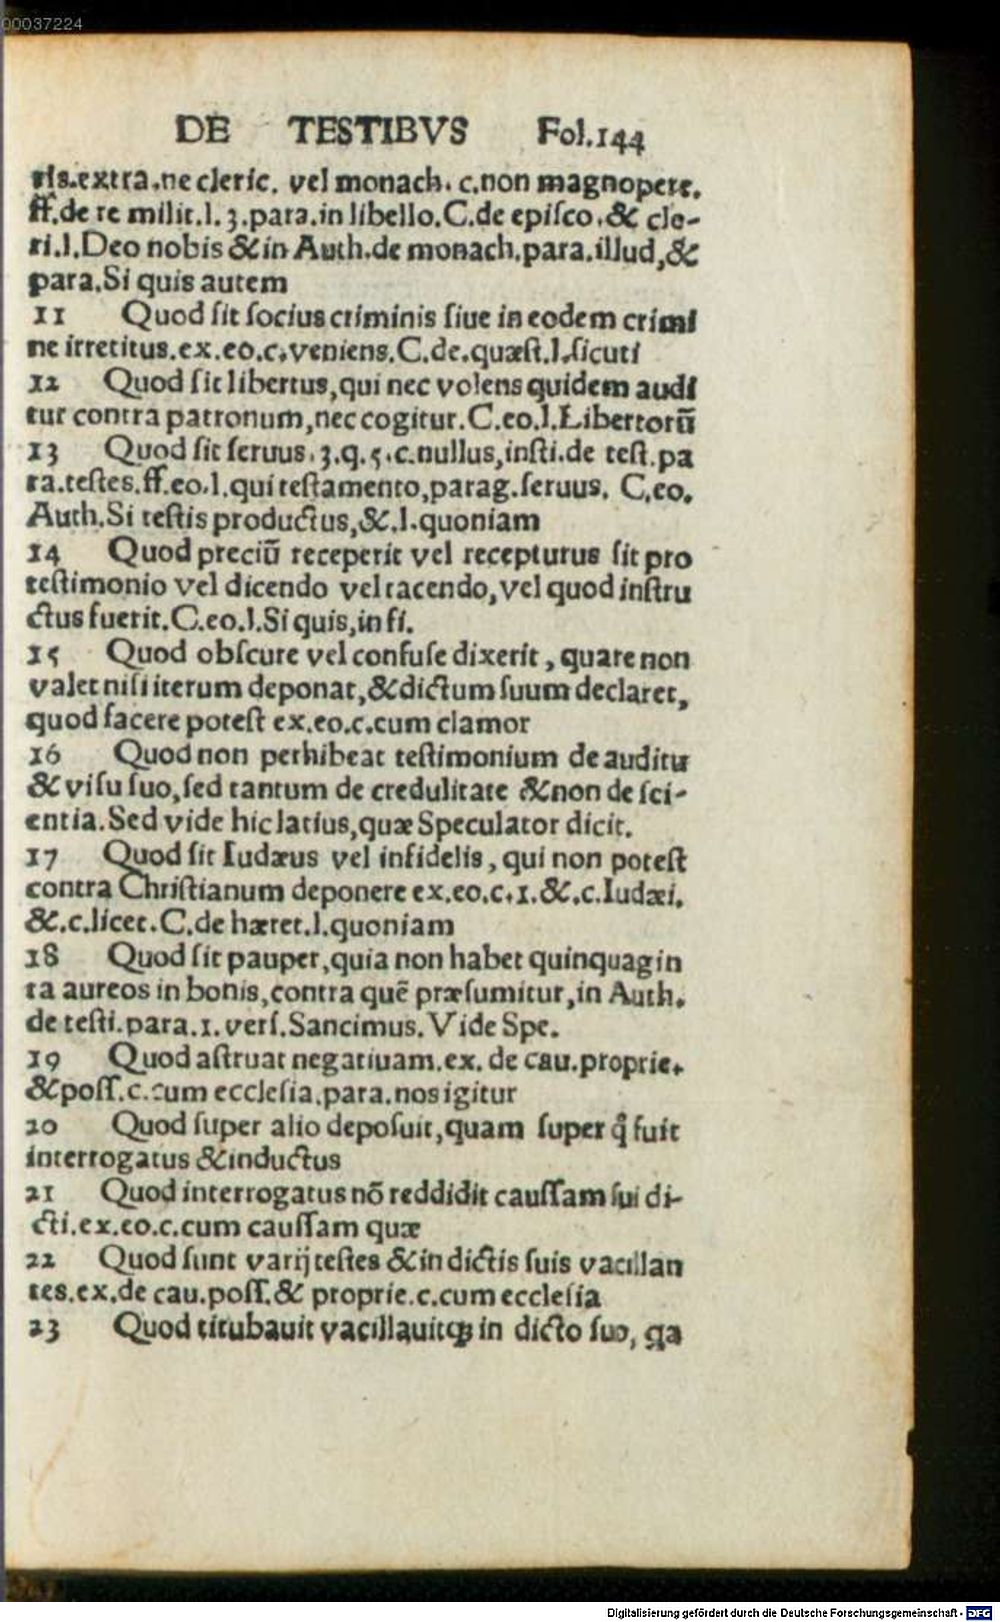 00037224
DE TESTIBVS Fol.144
ris.extra.ne cleric. vel monach. c.non magnopere.
ff.de re milit.l.3.para.in libello.C.de episco.& cle-
ri.l.Deo nobis & in Auth.de monach.para.illud,&
para.Si quis autem
11 Quod ſit ſocius criminis ſiue in eodem crimi
ne irretitus.ex.eo.c.veniens.C.de.quæſt.l.ſicuti
12 Quod ſit libertus,qui nec volens quidem audi
tur contra patronum,nec cogitur.C.eo.l.Libertorũ
13 Quod ſit ſeruus.3.q.5.c.nullus,inſti.de teſt.pa
ra.teſtes.ff.eo.l.qui teſtamento,parag.ſeruus. C.eo.
Auth.Si teſtis productus,&.l.quoniam
14 Quod preciũ receperit vel recepturus ſit pro
teſtimonio vel dicendo vel tacendo,vel quod inſtru
ctus fuerit.C.eo.l.Si quis,in fi.
15 Quod obſcure vel confuſe dixerit, quare non
valet niſi iterum deponat,& dictum ſuum declaret,
quod facere poteſt ex.eo.c.cum clamor
16 Quod non perhibeat teſtimonium de auditu
& viſu ſuo,ſed tantum de credulitate & non de ſci-
entia.Sed vide hic latius,quæ Speculator dicit.
17 Quod ſit Iudæus vel infidelis, qui non poteſt
contra Chriſtianum deponere ex.eo.c.1.&.c.Iudæi.
&.c.licet.C.de hæret.l.quoniam
18 Quod ſit pauper,quia non habet quinquagin
ta aureos in bonis,contra quẽ præſumitur,in Auth.
de teſti.para.1.verſ.Sancimus.Vide Spe.
19 Quod aſtruat negatiuam.ex. de cau.proprie.
& poſſ.c.cum eccleſia.para.nos igitur
20 Quod ſuper alio depoſuit,quam ſuper q̊ fuit
interrogatus & inductus
21 Quod interrogatus nõ reddidit cauſſam ſui di-
cti.ex.eo.c.cum cauſſam quæ
22 Quod ſunt varij teſtes & in dictis ſuis vacillan
tes.ex.de cau.poſſ.& proprie.c.cum eccleſia
23 Quod titubauit vacillauitq; in dicto ſuo, qa
Digitalisierung gefördert durch die Deutsche Forschungsgemeinschaft - DFG